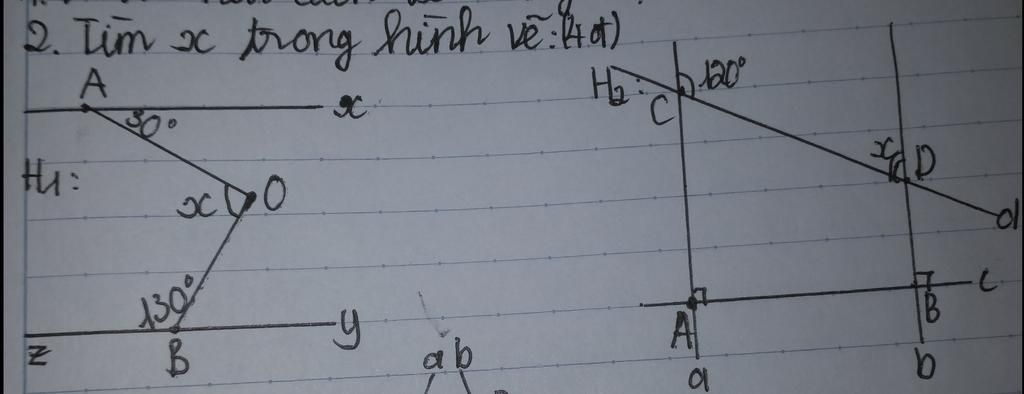 2. Tìm x trong hình vẽ: (4đ)
A
x
30°
H1:
x
O
130°
z
B
y
H2:
C
120°
x
D
d
A
B
c
a
b
a b